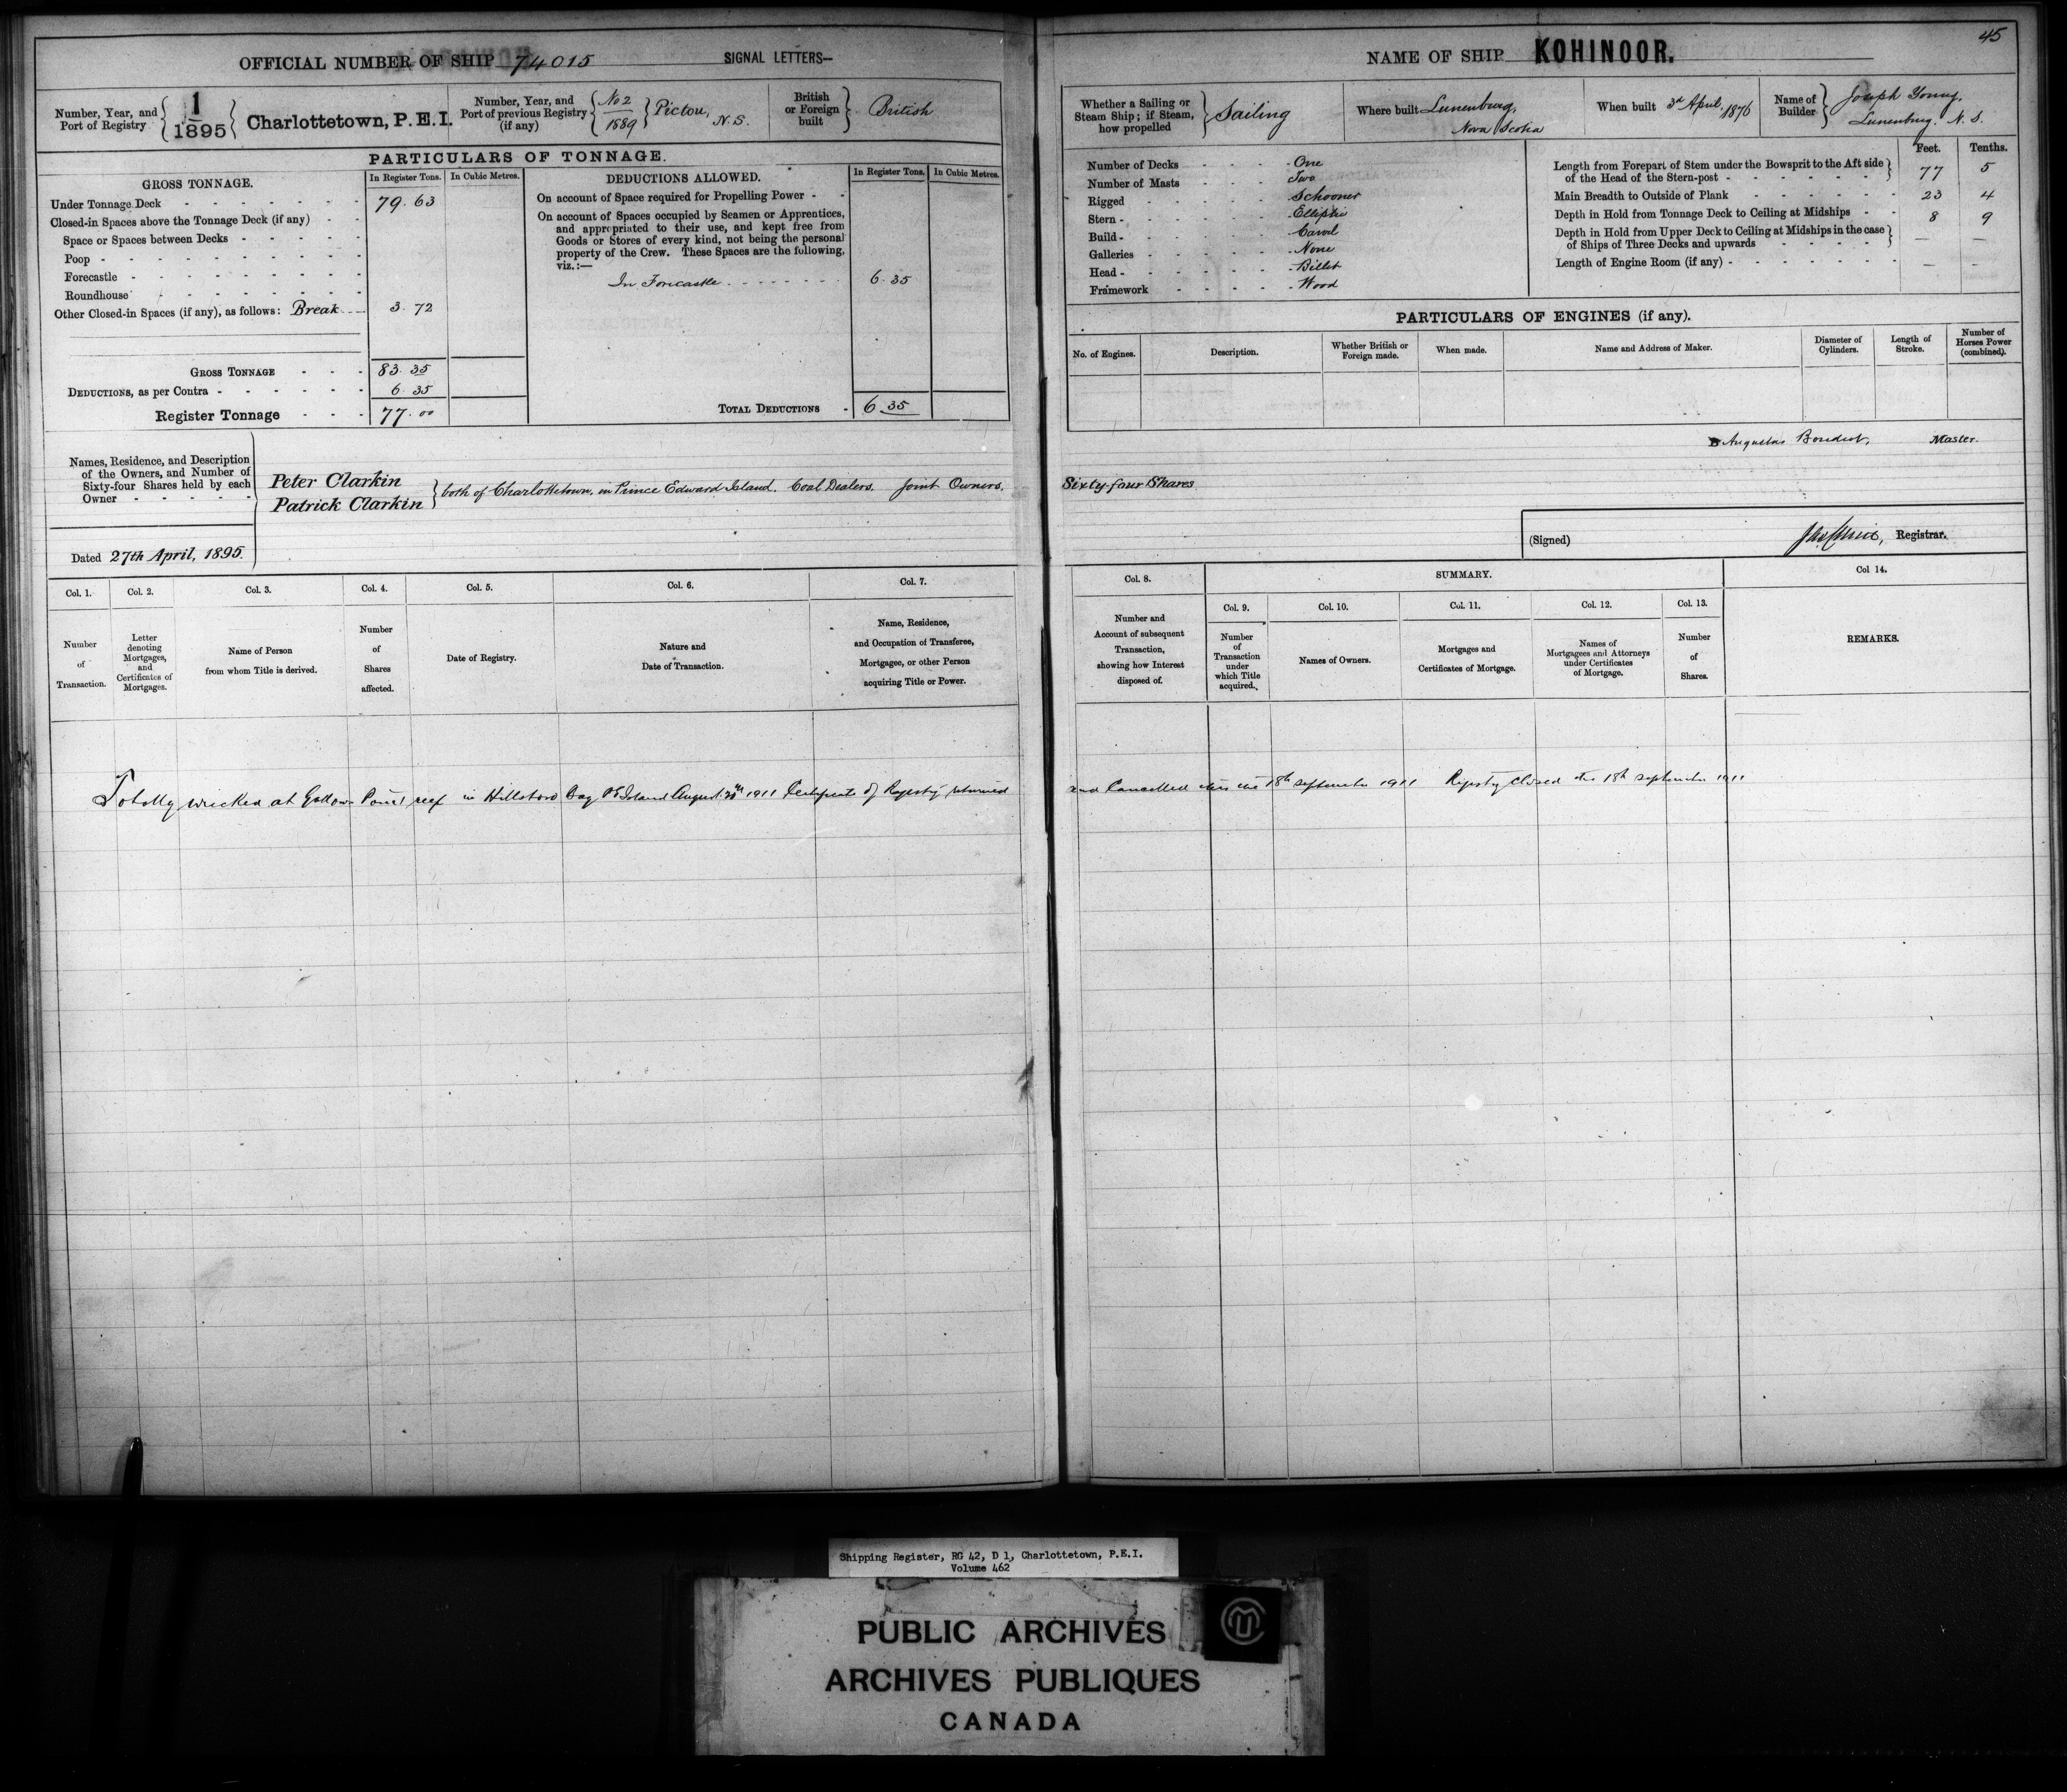 45
OFFICIAL NUMBER OF SHIP 74015 SIGNAL LETTERS—
Number, Year, and Port of Registry { 1/1895 } Charlottetown, P.E.I.
Number, Year, and Port of previous Registry (if any) { No 2/1889 } Pictou, N.S.
British or Foreign built } British
PARTICULARS OF TONNAGE.
GROSS TONNAGE. In Register Tons. In Cubic Metres.
Under Tonnage Deck - - - 79.63
Closed-in Spaces above the Tonnage Deck (if any) - -
Space or Spaces between Decks - - - -
Poop - - - -
Forecastle - - - -
Roundhouse - - - -
Other Closed-in Spaces (if any), as follows: Break 3.72
GROSS TONNAGE - - - 83.35
DEDUCTIONS, as per Contra - - - 6.35
Register Tonnage - - - 77.00
DEDUCTIONS ALLOWED. In Register Tons. In Cubic Metres.
On account of Space required for Propelling Power - -
On account of Spaces occupied by Seamen or Apprentices,
and appropriated to their use, and kept free from
Goods or Stores of every kind, not being the personal
property of the Crew. These Spaces are the following,
viz.:—
In Forcastle 6.35
TOTAL DEDUCTIONS - 6.35
Names, Residence, and Description
of the Owners, and Number of
Sixty-four Shares held by each
Owner - - - -
Peter Clarkin
Patrick Clarkin } both of Charlottetown, in Prince Edward Island. Coal Dealers. Joint Owners.
Dated 27th April, 1895.
NAME OF SHIP KOHINOOR.
Whether a Sailing or Steam Ship; if Steam, how propelled } Sailing
Where built Lunenburg, Nova Scotia
When built 3rd April, 1876
Name of Builder } Joseph Young, Lunenburg. N.S.
Number of Decks - - - One
Number of Masts - - - Two
Rigged - - - Schooner
Stern - - - Elliptic
Build - - - Carvel
Galleries - - - None
Head - - - Billet
Framework - - - Wood
Feet. Tenths.
Length from Forepart of Stem under the Bowsprit to the Aft side of the Head of the Stern-post - - - 77 5
Main Breadth to Outside of Plank - - - 23 4
Depth in Hold from Tonnage Deck to Ceiling at Midships - - 8 9
Depth in Hold from Upper Deck to Ceiling at Midships in the case of Ships of Three Decks and upwards - - - — —
Length of Engine Room (if any) - - - — —
PARTICULARS OF ENGINES (if any).
No. of Engines. Description. Whether British or Foreign made. When made. Name and Address of Maker. Diameter of Cylinders. Length of Stroke. Number of Horses Power (combined).
Master.
Sixty-four Shares
(Signed) Registrar.
Col. 1. Col. 2. Col. 3. Col. 4. Col. 5. Col. 6. Col. 7.
Number of Transaction.
Letter denoting Mortgages, and Certificates of Mortgages.
Name of Person from whom Title is derived.
Number of Shares affected.
Date of Registry.
Nature and Date of Transaction.
Name, Residence, and Occupation of Transferee, Mortgagee, or other Person acquiring Title or Power.
Col. 8. SUMMARY. Col 14.
Col. 9. Col. 10. Col. 11. Col. 12. Col. 13.
Number and Account of subsequent Transaction, showing how Interest disposed of.
Number of Transaction under which Title acquired.
Names of Owners.
Mortgages and Certificates of Mortgage.
Names of Mortgagees and Attorneys under Certificates of Mortgage.
Number of Shares.
REMARKS.
Totally wrecked at Gallows Point reef in Hillsboro Bay P E Island August 1911 Certificate of Registry returned
and Cancelled this 18th september 1911 Registry Closed this 18th september 1911
Shipping Register, RG 42, D 1, Charlottetown, P.E.I.
Volume 462
PUBLIC ARCHIVES
ARCHIVES PUBLIQUES
CANADA